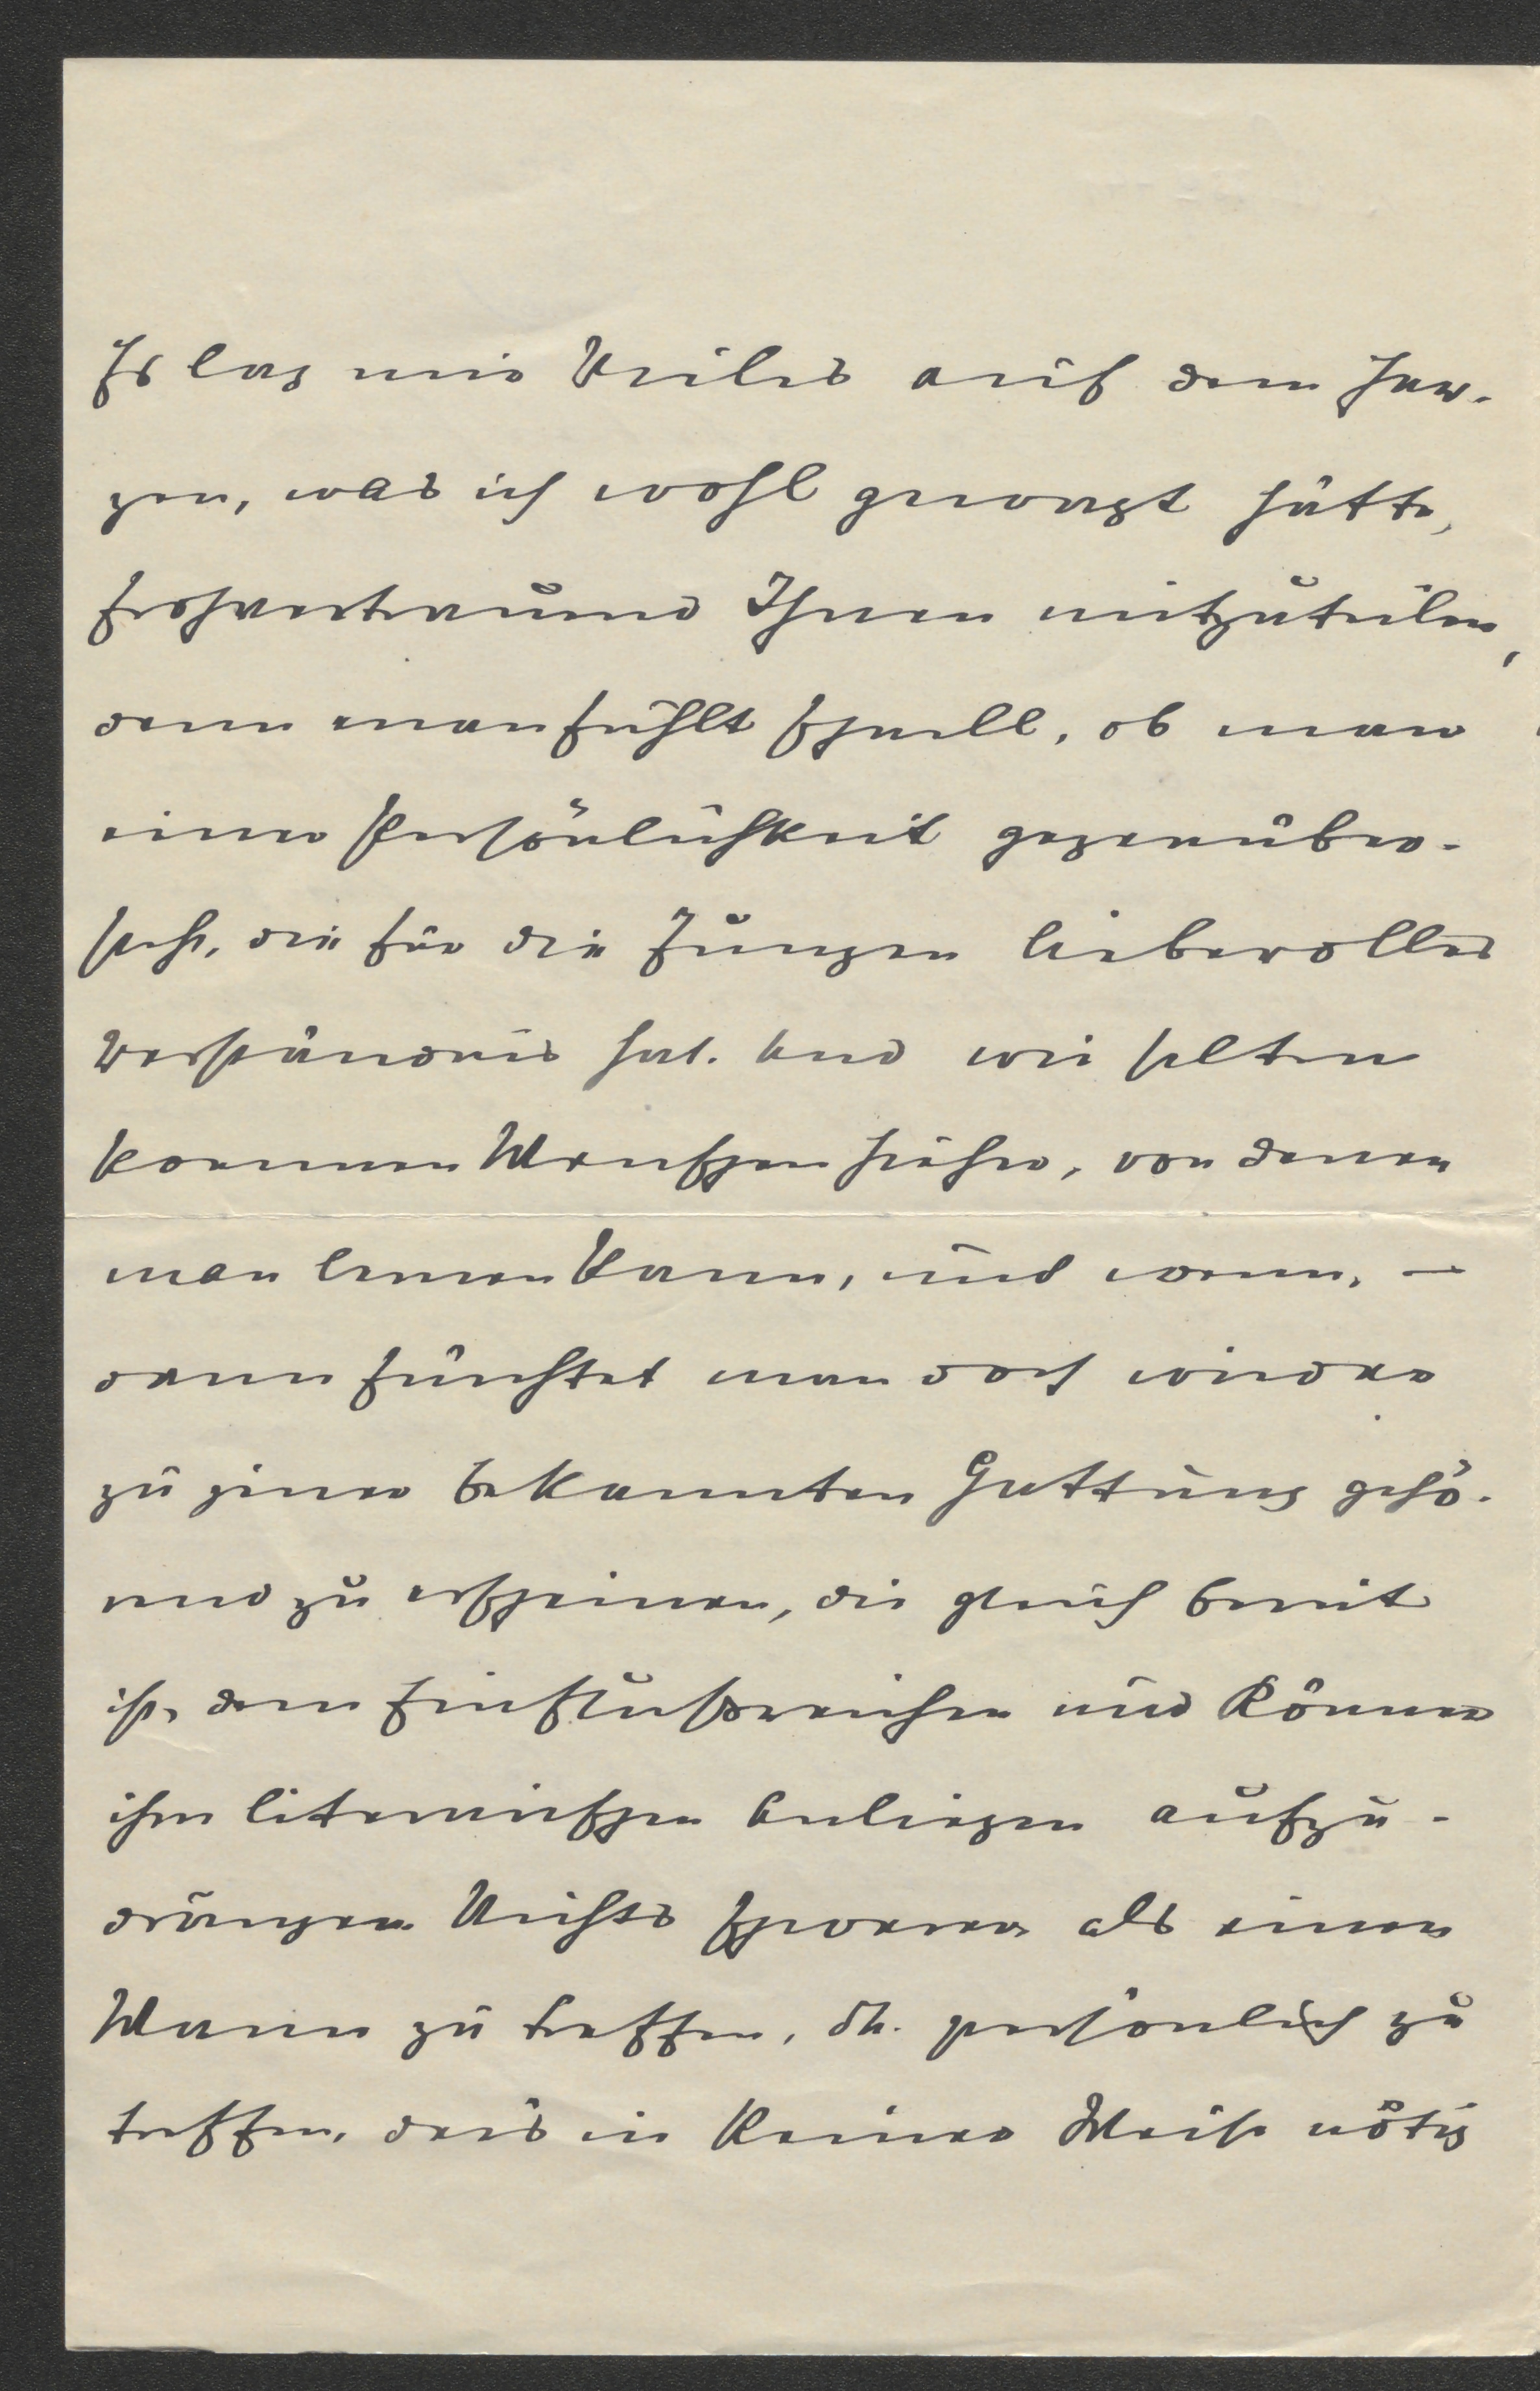 Es lag mir Vieles auf dem Her-
zen, was ich wohl gewagt hätte,
frohvertrauend Ihnen mitzuteilen,
denn man fühlt schnell, ob man
einer Persönlichkeit gegenüber-
steht, die für die Jungen liebevolles
Verständnis hat. Und wie selten
kommen Menschen hieher, von denen
man lernen kann, und wenn, —
dann fürchtet man doch wieder
zu jener bekannten Gattung gehö-
rend zu erscheinen, die gleich bereit
ist, dem Einflußreichen und Könner
ihre literarischen Anliegen aufzu-
drängen. Nichts schwerer als einen
Mann zu treffen, dh. persönlich zu
treffen, der's in keiner Weise nötig